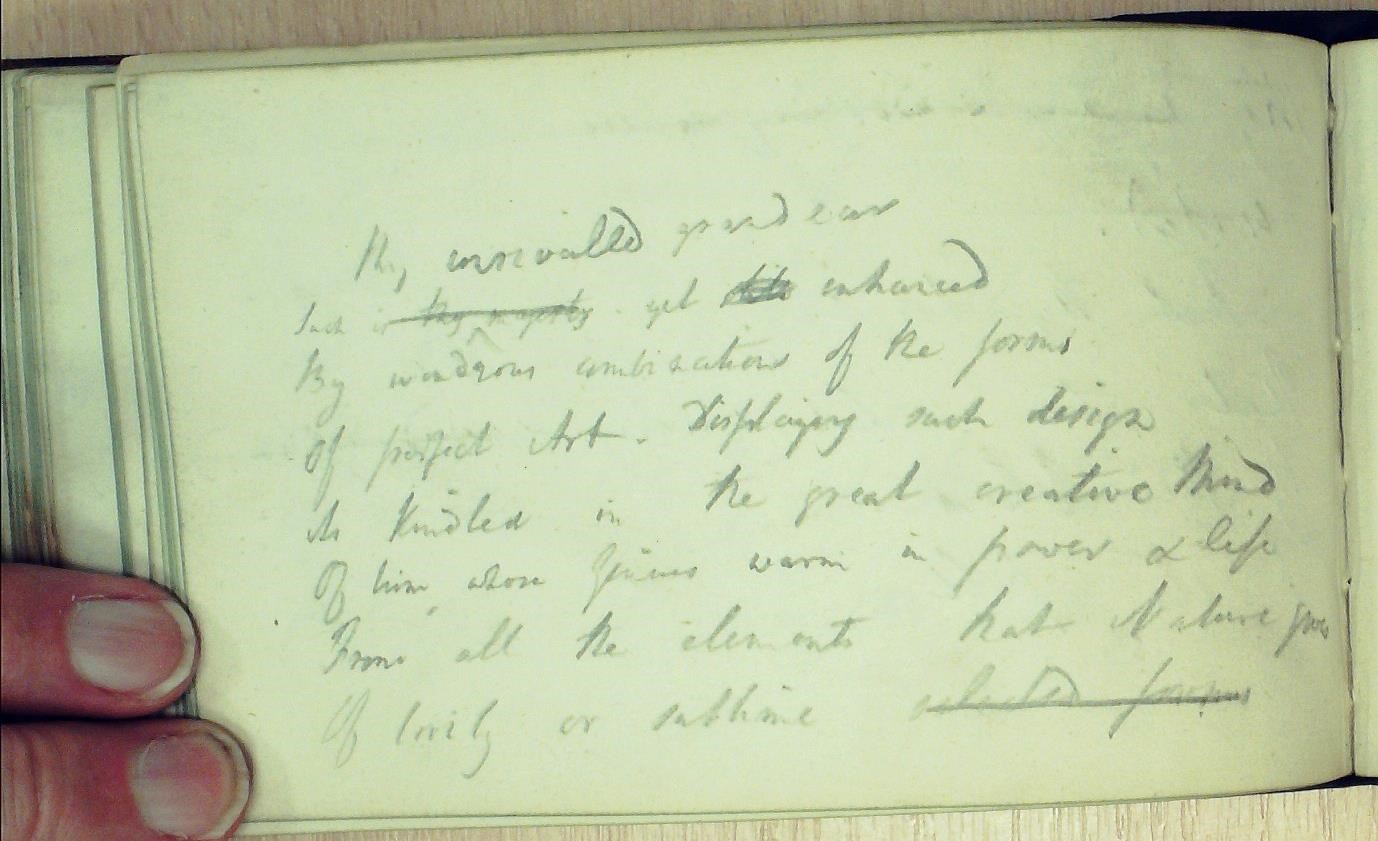 Thy unrivalled grandeur
Such is thy majesty yet enhanced
By wondrous combinations of the forms
Of perfect Art. Displaying such design
As kindled in the great creative Mind
Of him, whose Genius warm in power & life
From all the elements that Nature gives
Of lovely or sublime selected forms